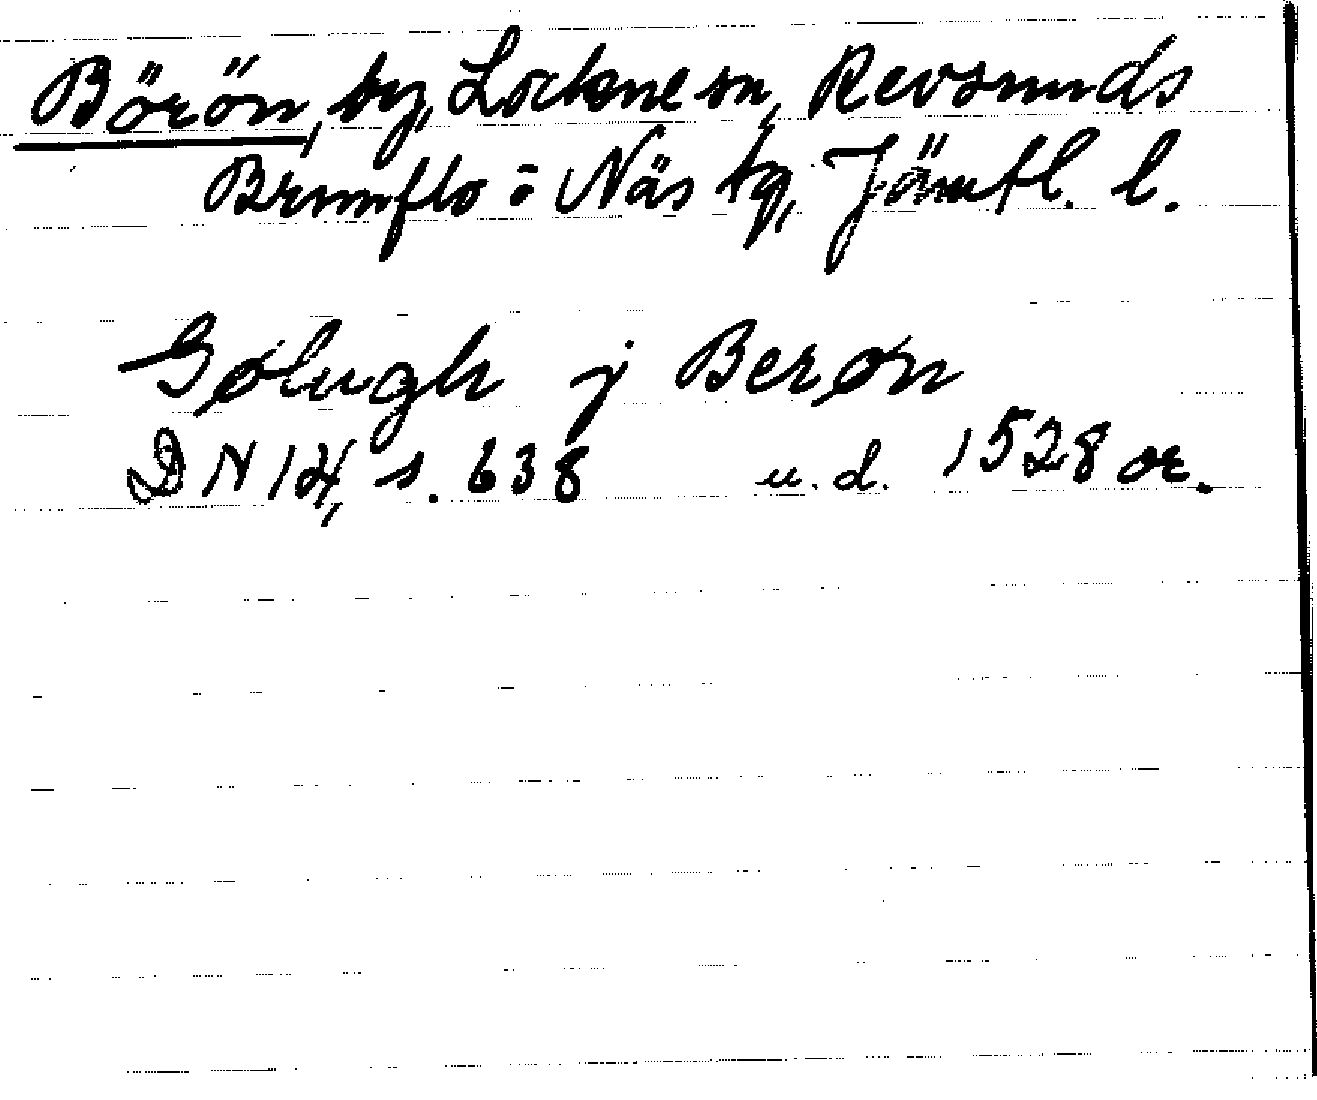 Börön, by, Lockne sn, Revsunds
Brunflo o Näs tg, Jämtl. l.
Gølugh j Berøn
DN 14, s. 638 u. d. 1528 or.